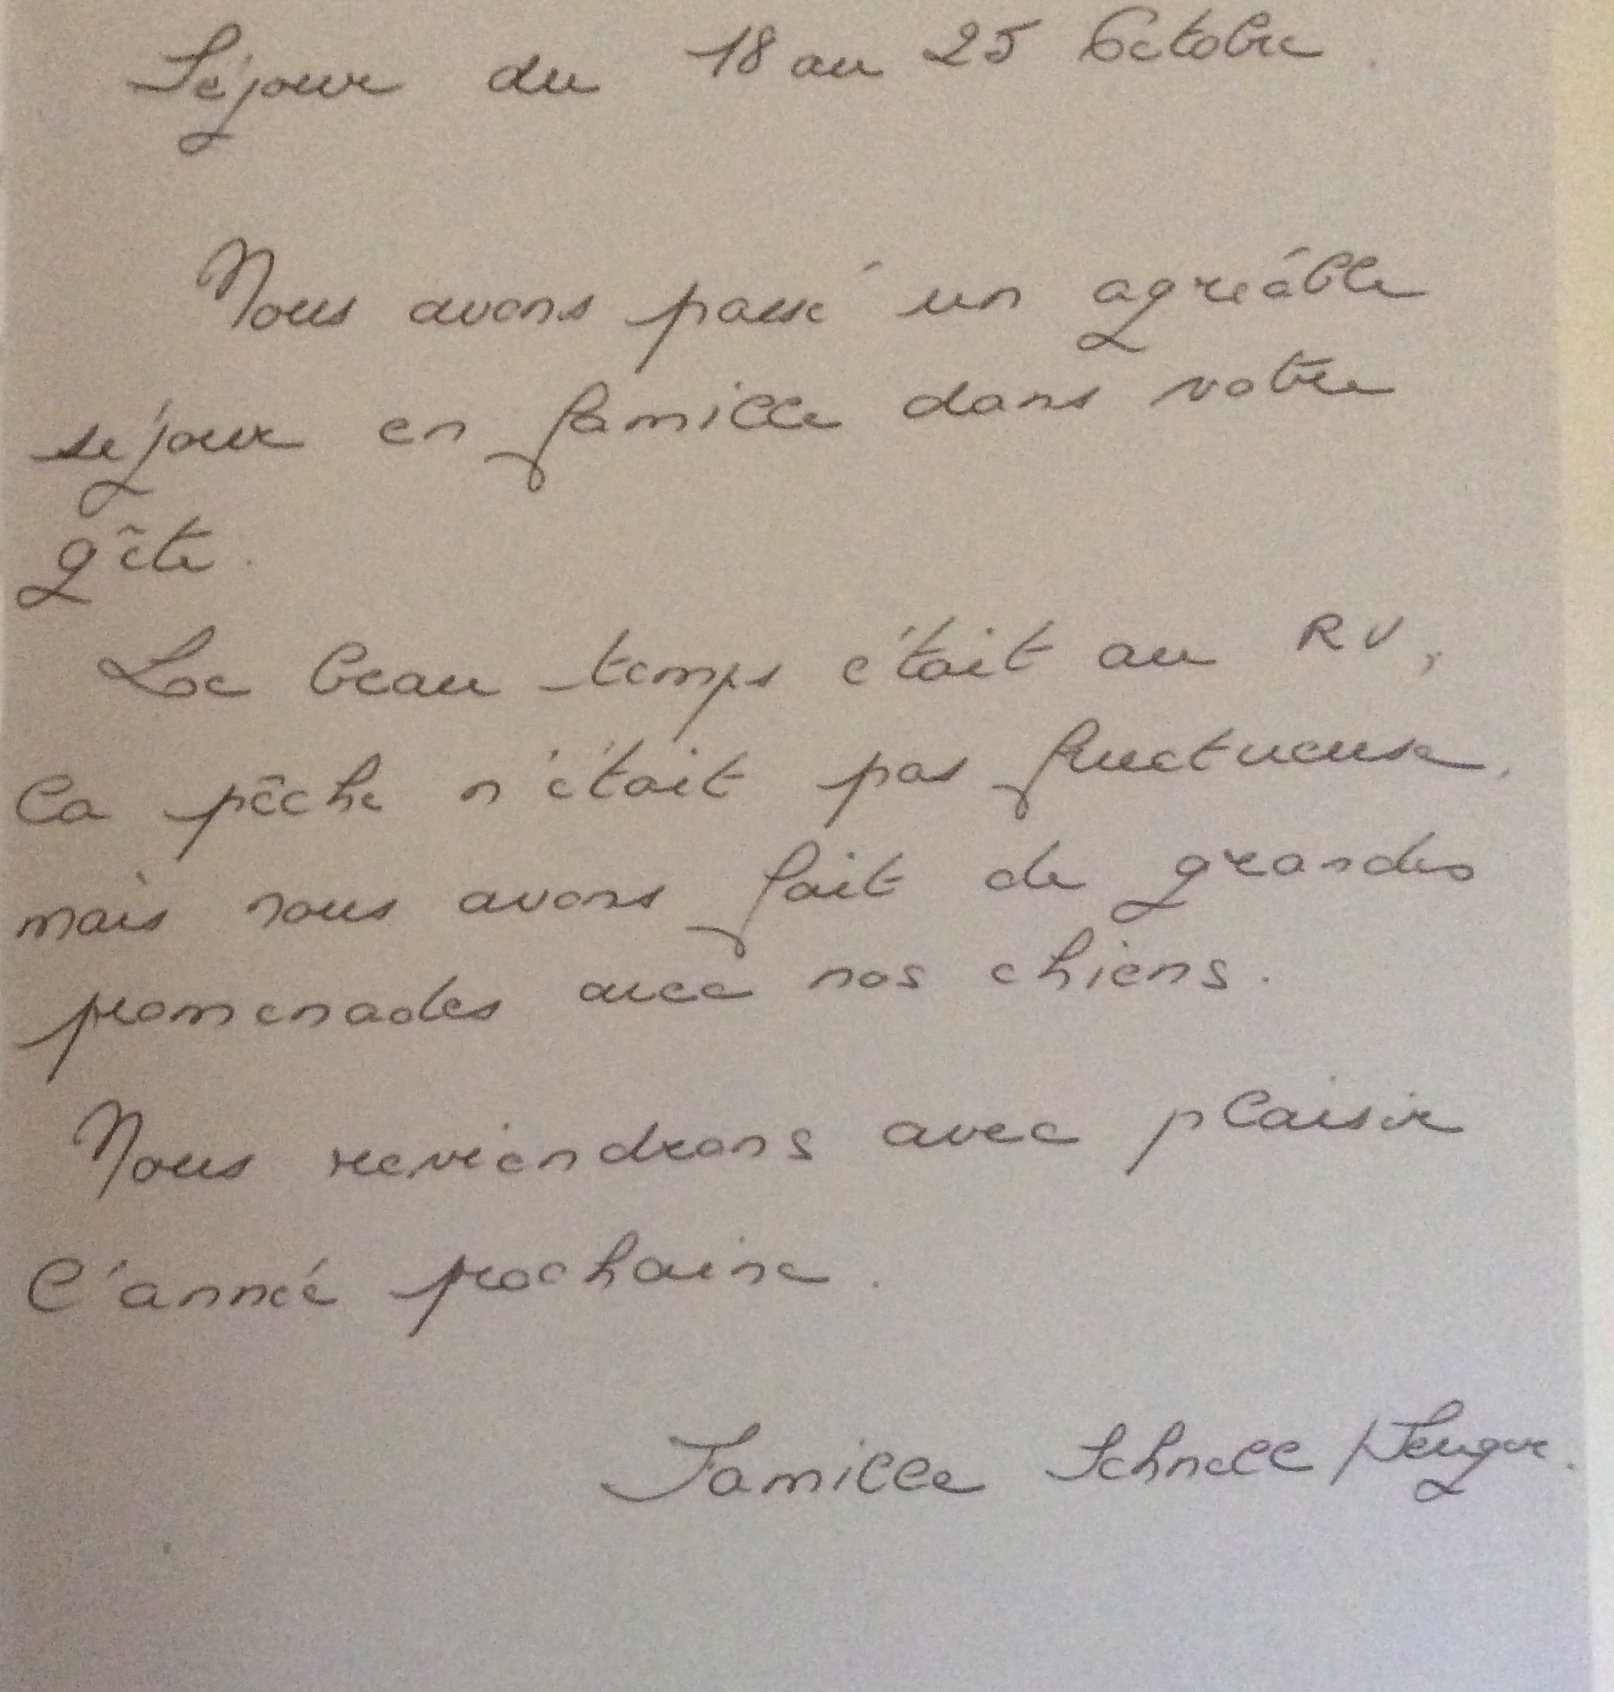 Séjour du 18 au 25 Octobre.
Nous avons passé un agréable
séjour en famille dans votre
gîte.
Le beau temps était au RV,
la pêche n'était pas fructueuse,
mais nous avons fait de grandes
promenades avec nos chiens.
Nous reviendrons avec plaisir
l'année prochaine.
Famille Schnell /